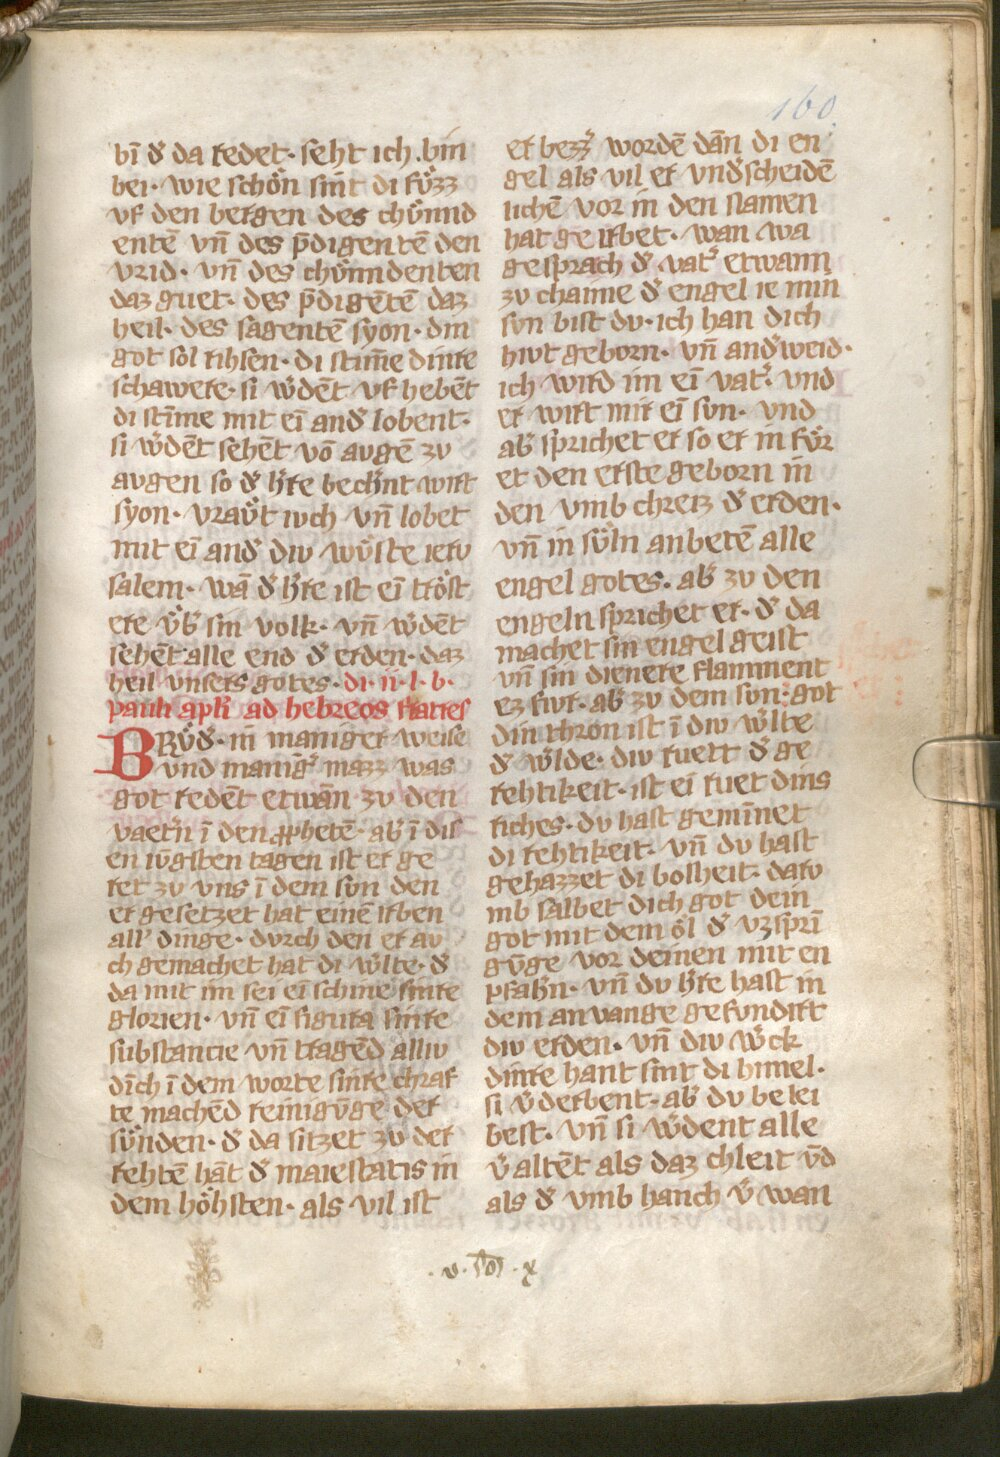 160
bī d̾ da redet· seht ich bin
bei· wie schôn sint di fv̂zz
vf den bergen des chv̂nnd
entē vn̄ des p̄digentē den
vrid· vn̄ des chv̂nndenten
daz guet· des p̄digētē daz
heil· des sagentē syon· din
got sol rihsen· di stim̄e dinre
schawere· si w̾dēt vf hebēt
di stīme mit eī and̾ lobent·
si w̾dēt sehēt vō avgē zv
avgen so d̾ h̾re bech̾nt wirt
syon· vrav̂t iuch vn̄ lobet
mit eī and̾ div wv̂ste ierv
salem· wā d̾ h̾re ist eī trôst
ere v̂b̾ sin volk· vn̄ w̾dēt
sehēt alle end d̾ erden· daz
heil vnsers gotes· di· n· l· b·
pauli apl̾i ad hebreos fratres
BRv̂d̾· in maniger weise
vnd manig̾ mazz was
got redēt etwān zv den
vaet̾n ī den ꝓphetē· ab̾ ī dis
en iv̄gsten tagen ist er ge
ret zv vns ī dem svn den
er gesetzet hat einē erben
all̾ dinge· dvrch den er av
ch gemachet hat di w̾lte· d̾
da mit im sei eī schine sinre
glorien· vn̄ eī figura sinre
substancie vn̄ tragēd alliv
dīch ī dem worte sinre chraf
te machēd reinigv̄ge der
sv̂nden· d̾ da sitzet zv der
rehtē hāt d̾ maiestatis in
dem hôhsten· als vil ist
er bezz̾ wordē dān di en
gel als vil er vnd̾scheidē
lichē vor in den namen
hat ge erbet· wan wa
gesprach d̾ vat̾ etwann
zv chaime d̾ engel ie min
svn bist dv· ich han dich
hivt geborn· vn̄ and̾weid·
ich wird im eī vat̾· vnd
er wirt mir eī svn· vnd
ab̾ sprichet er so er in fv̂r
et den erste geborn in
den vmb chreiz d̾ erden·
vn̄ in sv̂ln anbetē alle
engel gotes· ab̾ zv den
engeln sprichet er· d̾ da
machet sin engel geist
vn̄ sin dienere flamment
ez fivr· ab̾ zv dem svn: got
din thron ist ī div w̾lte
d̾ w̾lde· div ruett d̾ ge
rehtikeit· ist eī ruet dins
riches· dv hast gemīnet
di rehtikeit· vn̄ dv hast
gehazzet di bosheit· darv
mb salbet dich got dein
got mit dem ôl d̾ vzsprī
gv̄ge vor deinen mit en
pfah̾n· vn̄ dv h̾re hast in
dem anvange gefundirt
div erden· vn̄ div w̾ck
dinre hant sint di himel·
si v̾derbent· ab̾ dv belei
best· vn̄ si w̾dent alle
v̾altēt als daz chleit v̄d
als d̾ vmb hanch v̾wan